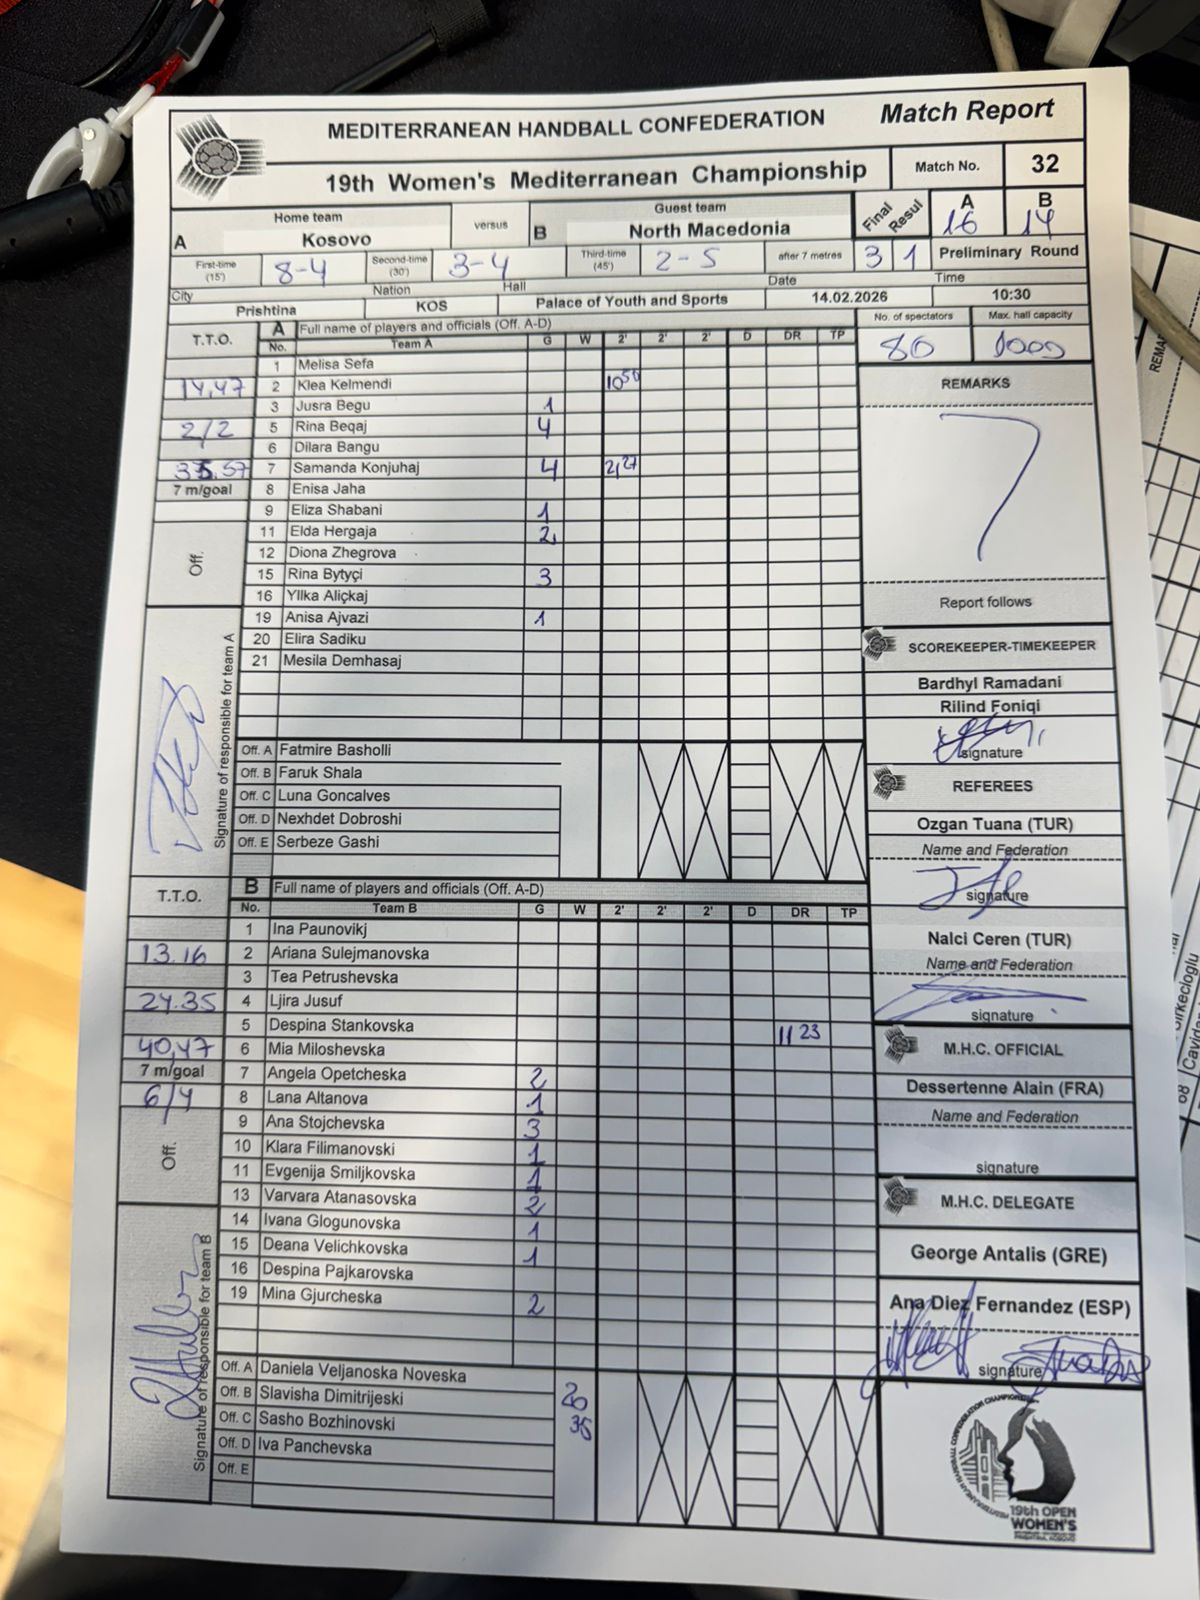 MEDITERRANEAN HANDBALL CONFEDERATION Match Report
19th Women's Mediterranean Championship Match No. 32
Home team versus Guest team Final Resul A B
A Kosovo B North Macedonia 16 14
First-time (15') 8-4 Second-time (30') 3-4 Third-time (45') 2-5 after 7 metres 3 1 Preliminary Round
City Nation Hall Date Time
Prishtina KOS Palace of Youth and Sports 14.02.2026 10:30
T.T.O. A Full name of players and officials (Off. A-D) No. of spectators Max. hall capacity
No. Team A G W 2' 2' 2' D DR TP 80 1000
1 Melisa Sefa
14,47 2 Klea Kelmendi 10 50 REMARKS
3 Jusra Begu 1
2/2 5 Rina Beqaj 4
6 Dilara Bangu
7 Samanda Konjuhaj 4 2,27
7 m/goal 8 Enisa Jaha
9 Eliza Shabani 1
11 Elda Hergaja 2
Off. 12 Diona Zhegrova
15 Rina Bytyçi 3
16 Yllka Aliçkaj Report follows
19 Anisa Ajvazi 1
20 Elira Sadiku SCOREKEEPER-TIMEKEEPER
21 Mesila Demhasaj
Bardhyl Ramadani
Rilind Foniqi
signature
Signature of responsible for team A
Off. A Fatmire Basholli
Off. B Faruk Shala REFEREES
Off. C Luna Goncalves
Off. D Nexhdet Dobroshi Ozgan Tuana (TUR)
Off. E Serbeze Gashi Name and Federation
T.T.O. B Full name of players and officials (Off. A-D) signature
No. Team B G W 2' 2' 2' D DR TP
1 Ina Paunovikj Nalci Ceren (TUR)
13.16 2 Ariana Sulejmanovska Name and Federation
3 Tea Petrushevska
24.35 4 Ljira Jusuf signature
5 Despina Stankovska 11 23
40,47 6 Mia Miloshevska M.H.C. OFFICIAL
7 m/goal 7 Angela Opetcheska 2
6/4 8 Lana Altanova 1 Dessertenne Alain (FRA)
9 Ana Stojchevska 3 Name and Federation
Off. 10 Klara Filimanovski 1
11 Evgenija Smiljkovska 1 signature
13 Varvara Atanasovska 2 M.H.C. DELEGATE
14 Ivana Glogunovska 1
15 Deana Velichkovska 1 George Antalis (GRE)
16 Despina Pajkarovska
19 Mina Gjurcheska 2 Ana Diez Fernandez (ESP)
signature
Signature of responsible for team B
Off. A Daniela Veljanoska Noveska
Off. B Slavisha Dimitrijeski 20
Off. C Sasho Bozhinovski 35
Off. D Iva Panchevska
Off. E
19th OPEN
WOMEN'S